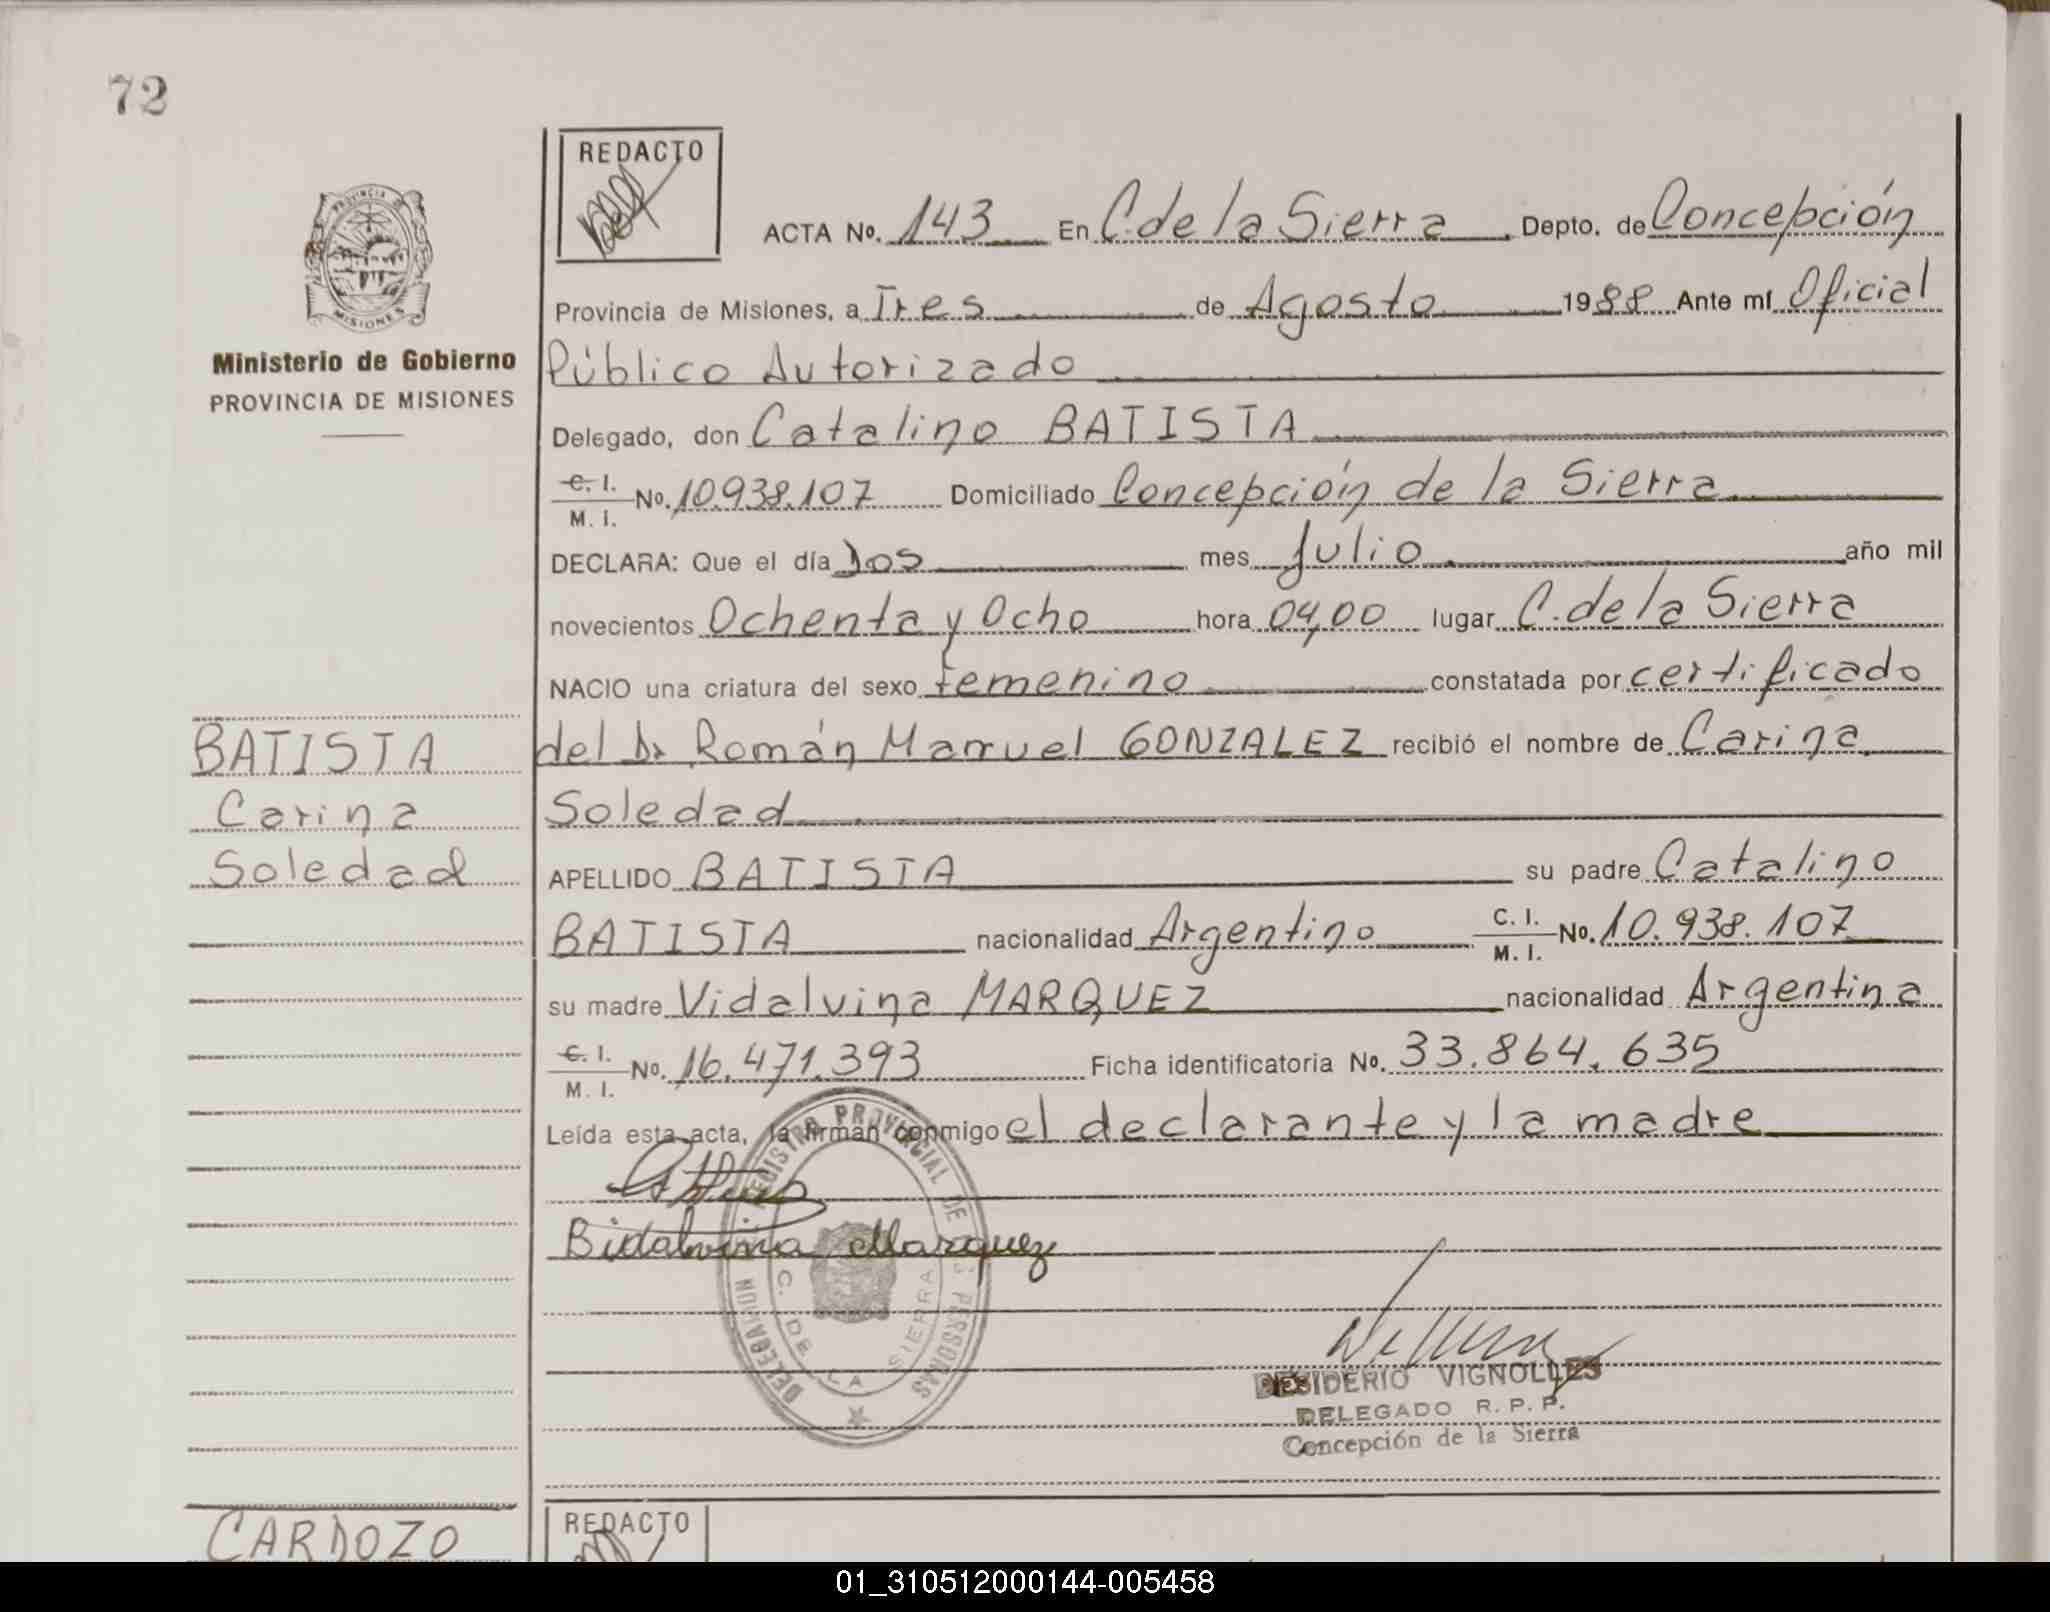 72
REDACTO
PROVINCIA DE
MISIONES
Ministerio de Gobierno
PROVINCIA DE MISIONES
ACTA No. 143 En C. de la Sierra Depto. de Concepción
Provincia de Misiones, a Tres de Agosto 1988 Ante mí Oficial
Público Autorizado
Delegado, don Catalino BATISTA
C. I. / M. I. No. 10.938.107 Domiciliado Concepción de la Sierra
DECLARA: Que el día Dos mes Julio año mil
novecientos Ochenta y Ocho hora 04,00 lugar C. de la Sierra
NACIO una criatura del sexo femenino constatada por certificado
del Dr Román Manuel GONZALEZ recibió el nombre de Carina
Soledad
BATISTA
Carina
Soledad
APELLIDO BATISTA su padre Catalino
BATISTA nacionalidad Argentino C. I. / M. I. No. 10.938.107
su madre Vidalvina MARQUEZ nacionalidad Argentina
C. I. / M. I. No. 16.471.393 Ficha identificatoria No. 33.864.635
Leída esta acta, la firman conmigo el declarante y la madre
Bidalvina Marquez
DELEGACION REGISTRO PROVINCIAL DE LAS PERSONAS
C. DE LA SIERRA
DESIDERIO VIGNOLLES
DELEGADO R. P. P.
Concepción de la Sierra
CARDOZO
REDACTO
01_310512000144-005458